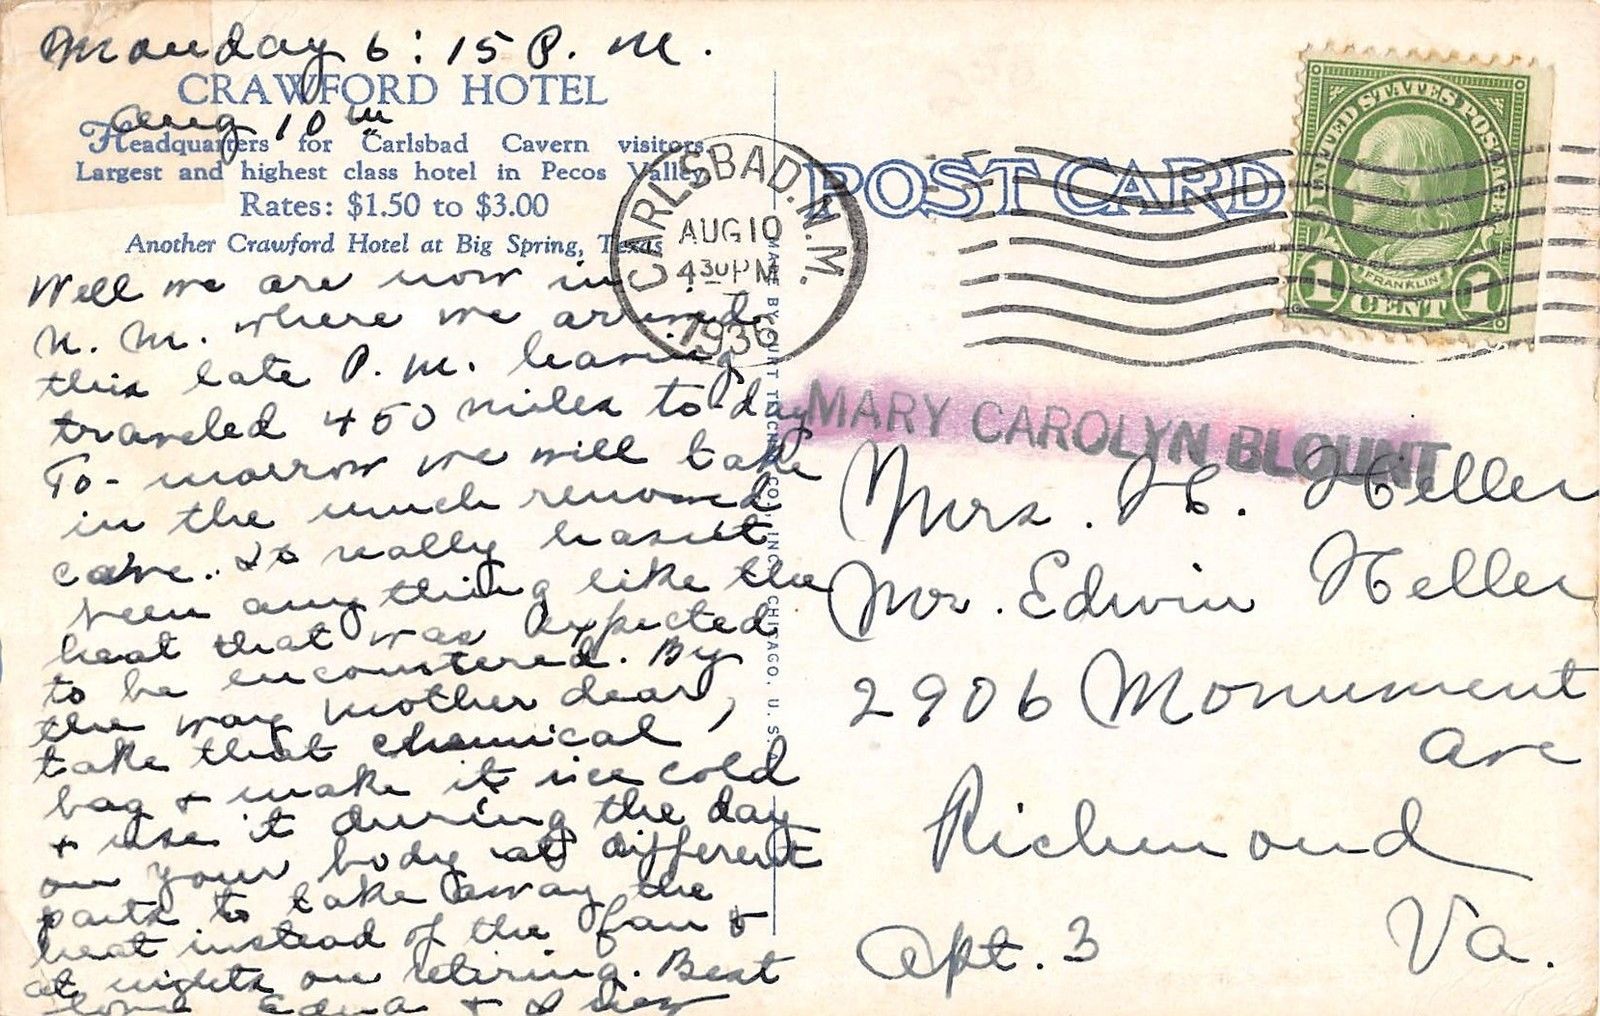 Monday 6:15 P. M.
CRAWFORD HOTEL
Aug 10th
Headquarters for Carlsbad Cavern visitors.
Largest and highest class hotel in Pecos Valley
Rates: $1.50 to $3.00
Another Crawford Hotel at Big Spring, Texas
Well we are now in
N. M. where we arrived
this late P. M. having
traveled 450 miles to-day
To-morrow we will take
in the much renowned
cave. It really hasn't
been anything like the
heat that was expected
to be encountered. By
the way mother dear,
take that chemical
bag + make it ice cold
+ use it during the day
on your body at different
parts to take away the
heat instead of the fan +
at nights on retiring. Best
love Edna +
CARLSBAD. N. M.
AUG 10
4 30 PM
1936
POST CARD
UNITED STATES POSTAGE
FRANKLIN
1 CENT 1
MADE BY CURT TEICH & CO., INC., CHICAGO, U. S. A.
MARY CAROLYN BLOUNT
Mrs. H. Heller
Mr. Edwin Heller
2906 Monument
Ave
Richmond
Va.
Apt. 3